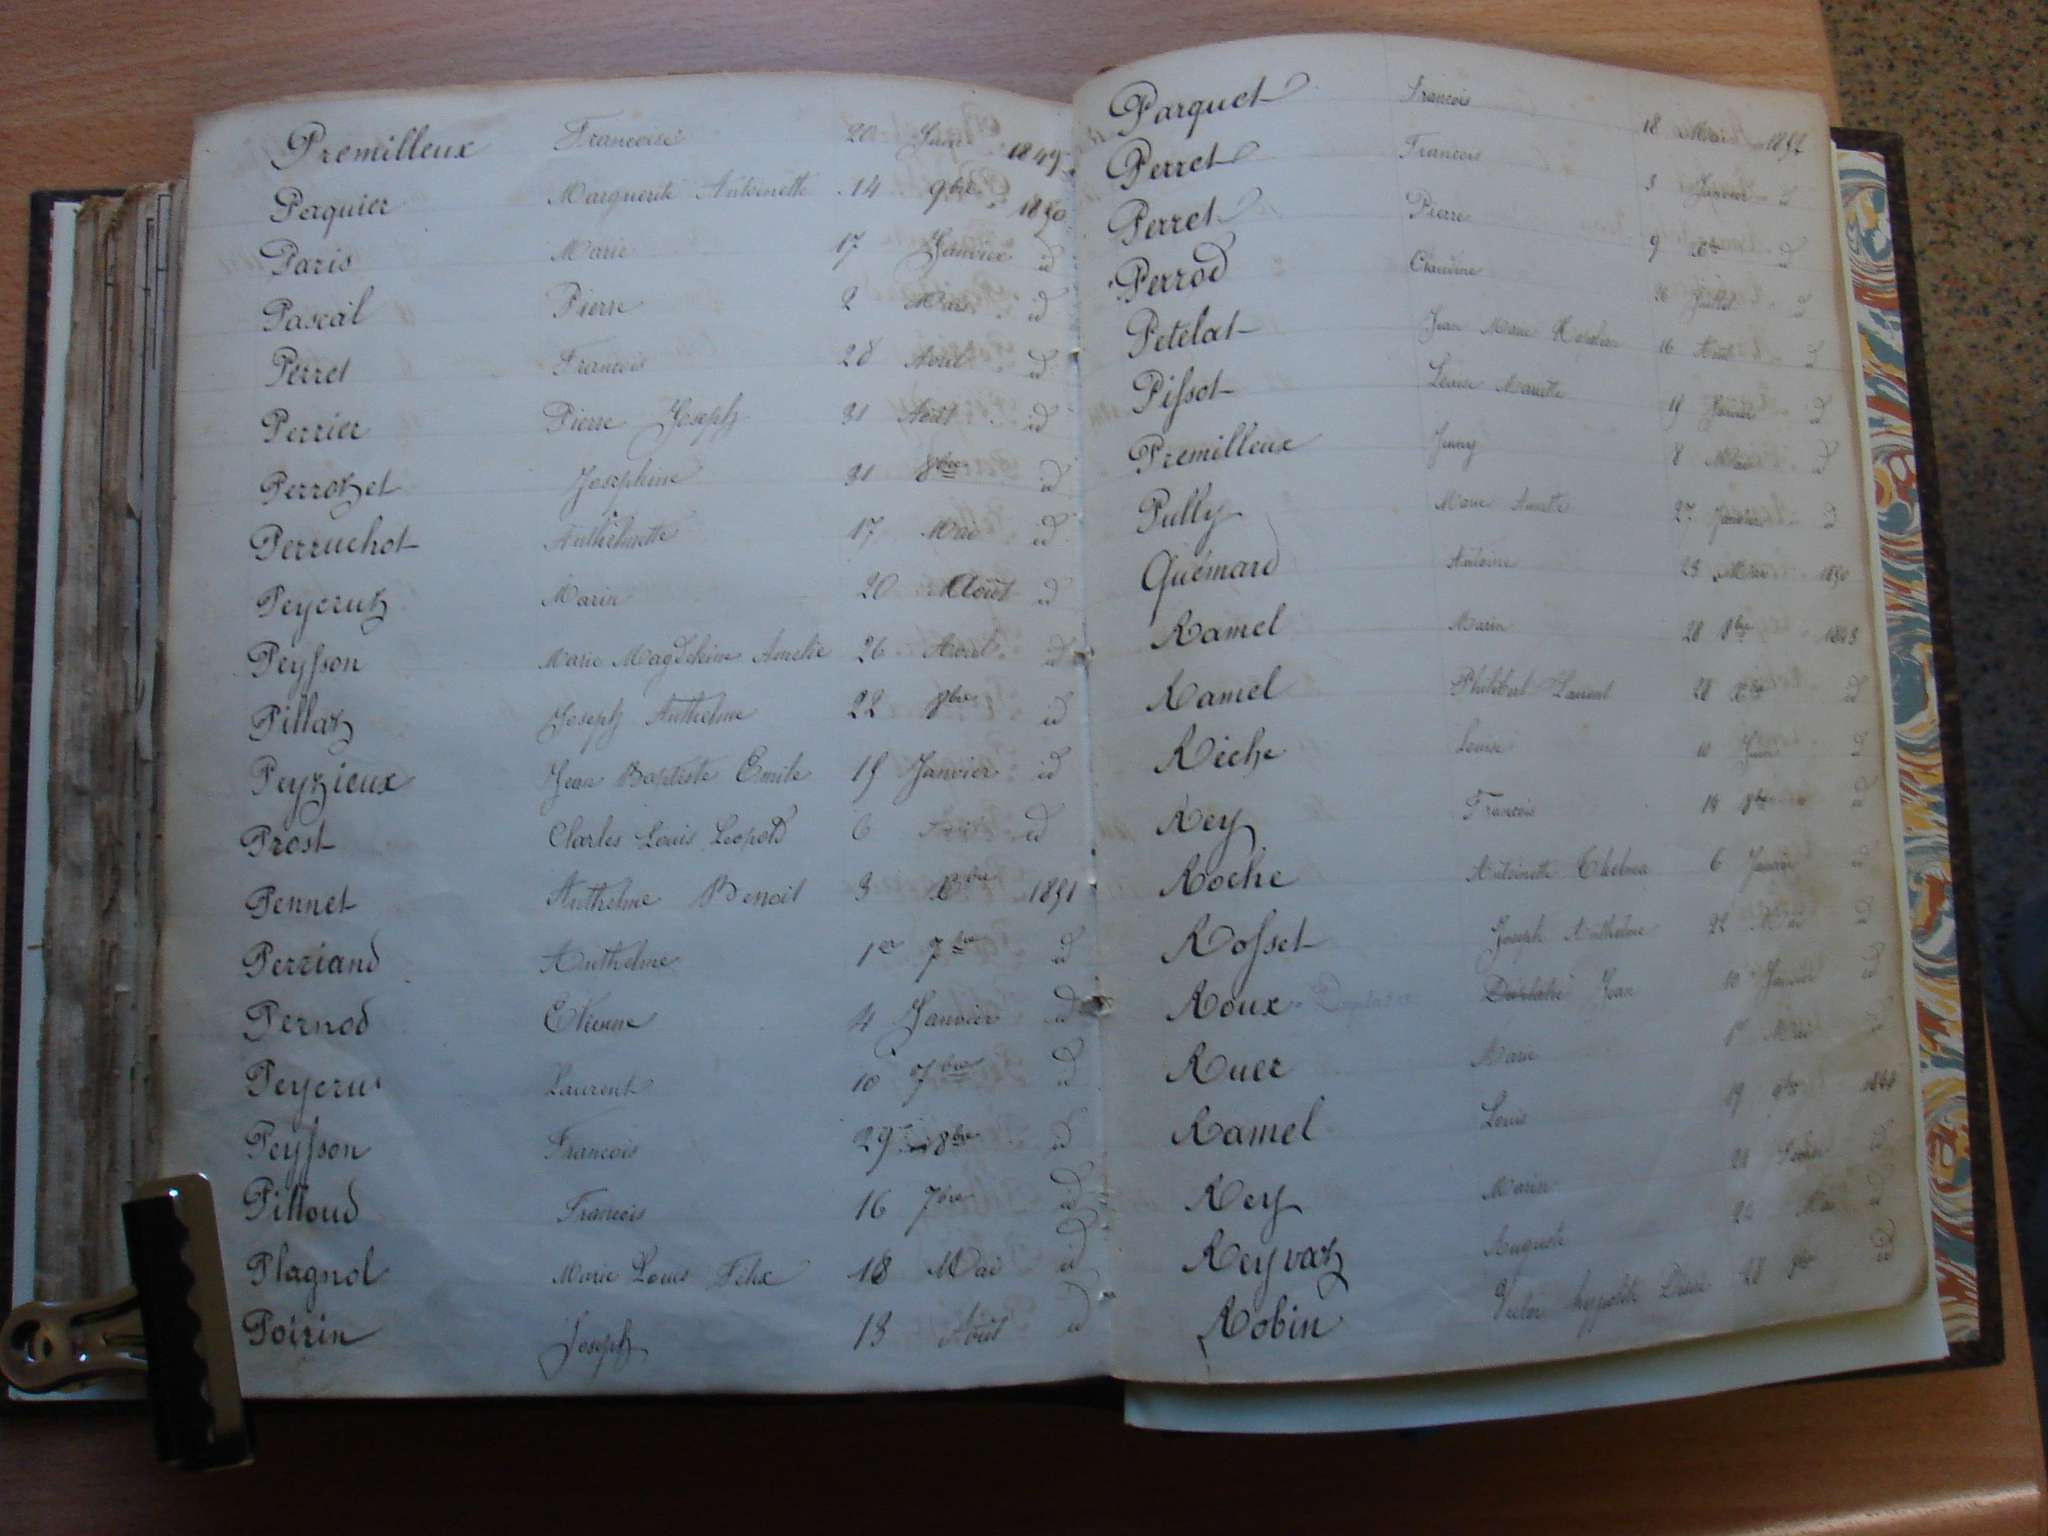 Premilleux Francoise 20 Juin 1849
Paquier Marguerite Antoinette 14 9bre 1850
Paris Marie 17 Janvier id
Pascal Pierre 2 Mars id
Perret Francois 28 Avril id
Perrier Pierre Joseph 31 Août id
Perrozet Josephine 31 8bre id
Perruchot Anthelmette 17 Mai id
Peycruz Marie 20 Août id
Peysson Marie Magdeleine Amelie 26 Avril id
Pillaz Joseph Anthelme 22 8bre id
Peyzieux Jean Baptiste Emile 15 Janvier id
Prost Charles Louis Leopold 6 id
Pennet Anthelme Benoit 3 Xbre 1851
Perriand Anthelme 1er 7bre id
Pernod Etienne 4 Janvier id
Peycru Laurent 10 7bre id
Peysson Francois 29 8bre id
Pilloud Francois 16 7bre id
Plagnol Marie Louis Felix 18 Mai id
Poirin Joseph 13 Août id
Parquet Francois 18 Mai 1851
Perret Francois 3 Janvier id
Perret Pierre 9 Xbre id
Perrod Claudine 26 Juillet id
Petelat Jean Marie 16 Août id
Pissot Louise Mariette 19 Janvier id
Premilleux Jenny 8 Mai id
Pully Marie 27 Janvier id
Quémard Antoine 23 1850
Ramel Marin 28 8bre 1848
Ramel Philibert Laurent 28 Xbre id
Réche Louise 10 Juin id
Rey Francois 14 8bre id
Roche Antoinette Thelma 6 Janvier id
Rosset Joseph Anthelme 22 Mai id
Roux Jean 10 Janvier id
Ruer Marie 1er Mars id
Ramel Louis 19 9bre
Rey Marin id
Reyvaz Auguste 24 Mai id
Robin Victor hypolite 28 id